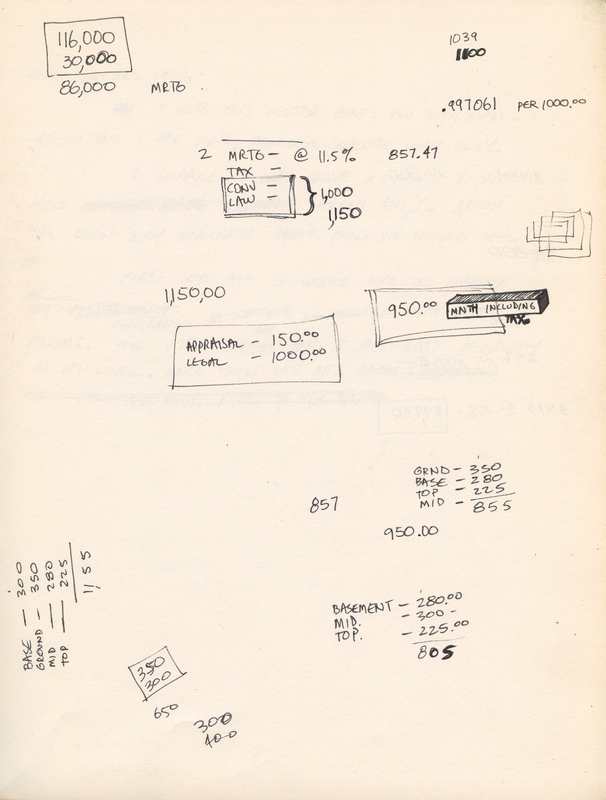 116,000
30,000
86,000 MRTG
1039
1100
.997061 PER 1000.00
2 MRTG - @ 11.5% 857.47
TAX -
CONV -
LAW -
1,000
1,150
1,150,00
950.00 MNTH INCLUDING
TAX.
APPRAISAL - 150.00
LEGAL - 1000.00
GRND - 350
BASE - 280
TOP - 225
MID - 855
857
950.00
BASE - 300
GROUND - 350
MID - 280
TOP - 225
1,155
BASEMENT - 280.00
MID. - 300 -
TOP. - 225.00
805
350
300
650
300
400